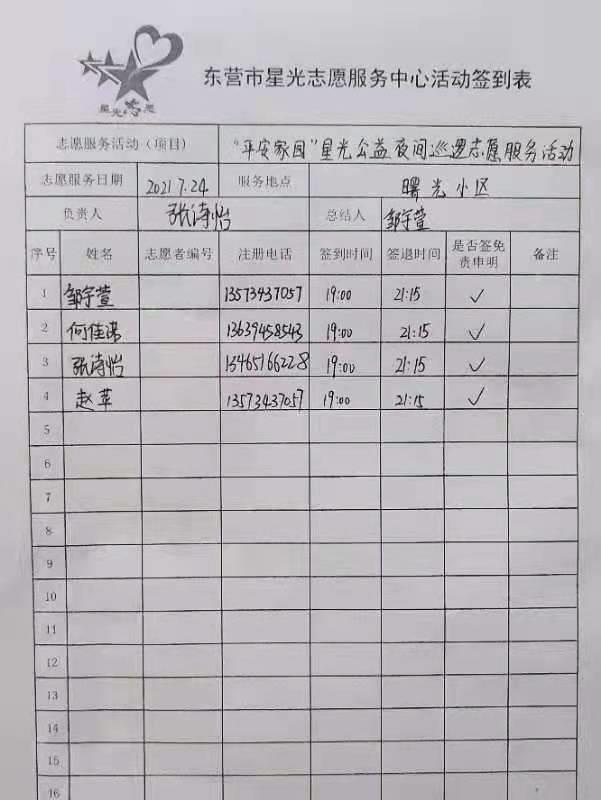 星光志愿
东营市星光志愿服务中心活动签到表
志愿服务活动（项目） “平安家园”星光公益夜间巡逻志愿服务活动
志愿服务日期 2021 7.24 服务地点 曙光小区
负责人 张诗怡 总结人 邹宇萱
序号 姓名 志愿者编号 注册电话 签到时间 签退时间 是否签免责申明 备注
1 邹宇萱 13573437057 19:00 21:15 ✓
2 何佳 13639458543 19:00 21:15 ✓
3 张诗怡 15465166228 19:00 21:15 ✓
4 赵苹 13573437057 19:00 21:15 ✓
5
6
7
8
9
10
11
12
13
14
15
16